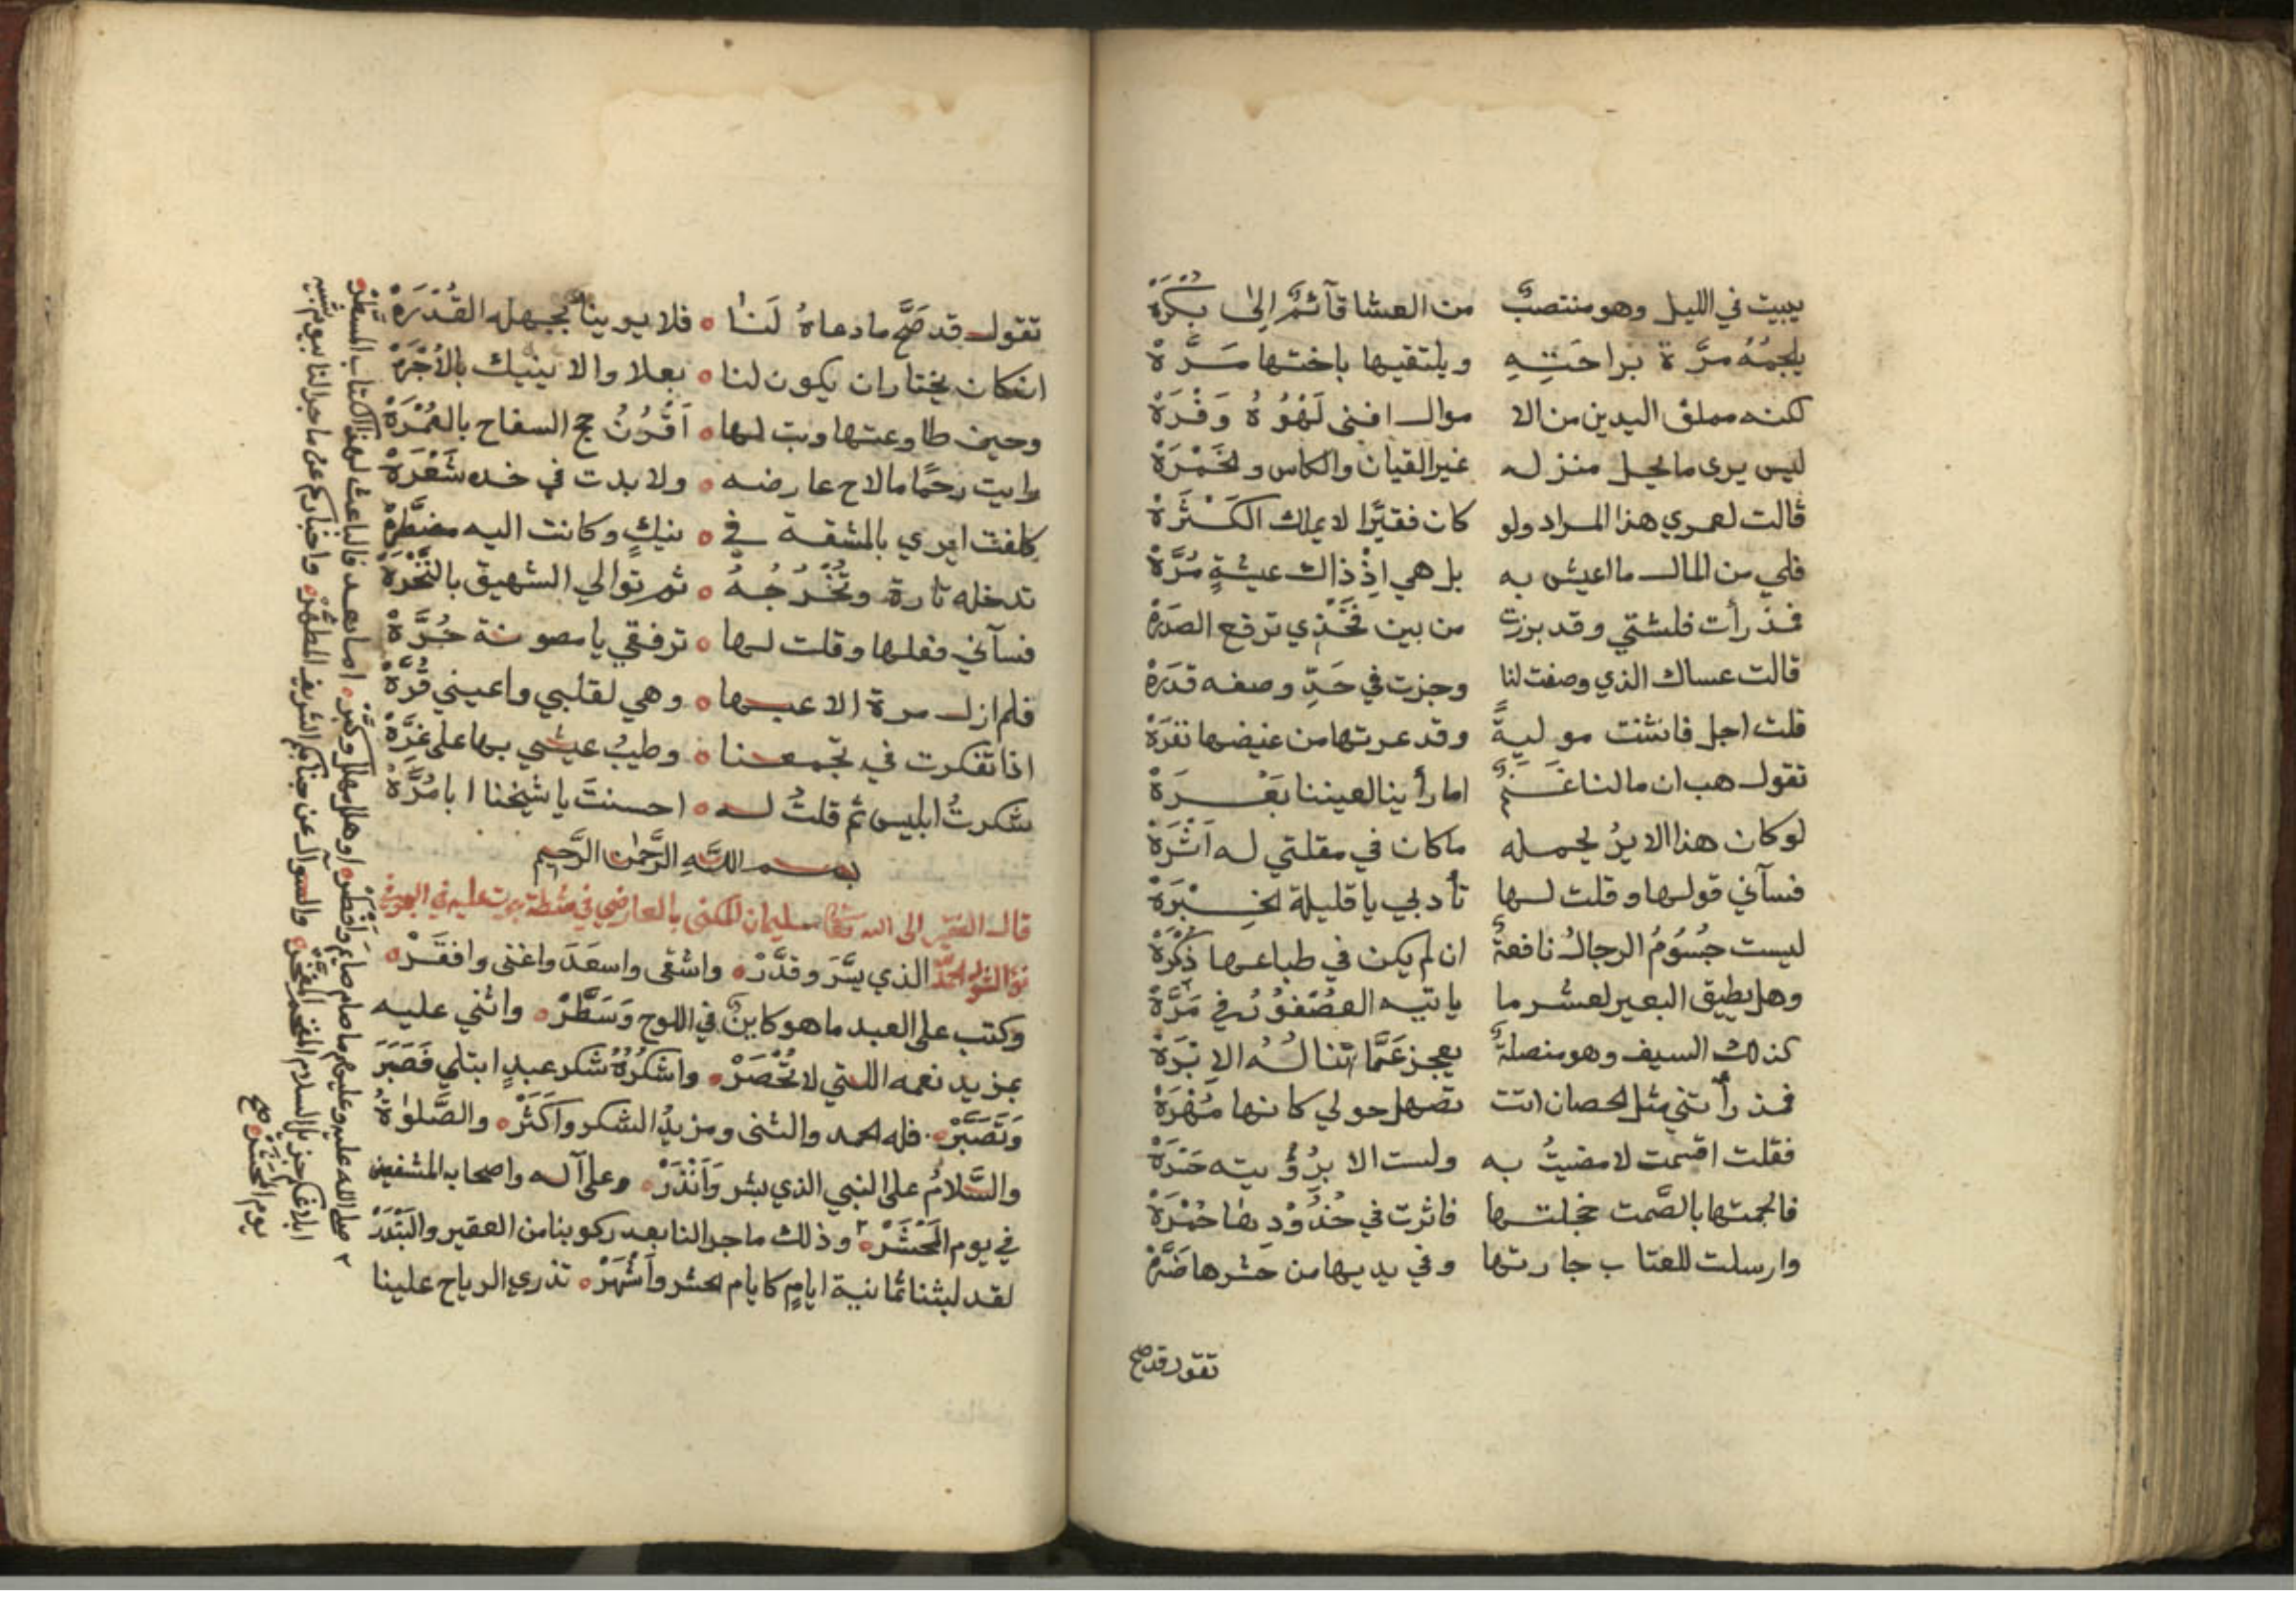 يبيت في الليل وهو منتصبٌ من العشا قآئمٌ الى بُكْرَةْ
يلجمُهُ مرَّة براحَتِهِ ويلتقيها باختها مَرَّةْ
لكنه مملق اليدين من الا موال افنى لَهْوُهُ وَفْرَهْ
ليس يرى ما يحل منزله غير القيان والكاس والخَمْرَةْ
قالت لعمري هذا المراد ولو كان فقيرًا لا يملك الكَسْرَةْ
فلي من المال ما اعيش به بل هي اذْ ذاك عيشةٍ مُرَّةْ
فذ رأت فلشتي وقد برزت من بين فَخْذي ترقع الصدرَهْ
قالت عساك الذي وصفت لنا وجزت في حَدِّ وصفه قدرَهْ
قلت اجل فانثنت موليةً وقد عرتها من غيضها نفرَهْ
تقول هب ان مالنا غَنَمٌ اما رأينا لعيننا بَعْرَةْ
لو كان هذا الاير يحمله ما كان في مقلتي له اَثْرَةْ
فسآني قولها وقلت لها تأدبي يا قليلة الخِبْرَةْ
ليست جُسُومُ الرجالُ نافعةٌ ان لم يكن في طباعها ذُكْرَةْ
وهل يطيق البعير لعشر ما ياتيه العصْفُوْرُ في مَرَّةْ
كذلك السيف وهو منصلةٌ يعجز عَمَّا تناله الاِبْرَةْ
فمذ رأتني مثل الحصان اتت تصهل حولي كانها مُهْرَةْ
فقلت اقسمت لا مضيتُ به ولست الا برُؤيته حَدرَةْ
فالجمتها بالصَّمت خجلتها فاثرت في خُدُوْدِها حُمْرَةْ
وارسلت للعتاب جارتها وفي يديها من حشرها ضَرَّةْ
تقول قد صح
تقول قد صَحَّ ما دعاهُ لَنَا ٥ فلا يورينا بجهله القُدْرَةْ
ان كان يختار ان يكون لنا ٥ بعلا والا ينيك بالأُجْرَةْ
وحين طاوعتها وبت لها ٥ اَقْرُنُ حج السفاح بالعُمْرَةْ
وايت رحمًا ما لاح عارضه ٥ ولا بدت في خده شَعْرَةْ
كلفت ايري بالمشقة في ٥ نيكٍ وكانت اليه مضطَرَّةْ
تدخله تارة وتُخْرِجُهُ ٥ ثم توالي الشهيق بالنَّخْرَةْ
فسآني فعلها وقلت لها ٥ ترفقي يا مصونة حُرَّةْ
فلم ازل مرة الاعبها ٥ وهي لقلبي واعيني قُرَّةْ
اذا تفكرت في تجمعنا ٥ وطيبُ عيشي بها على غِرَّةْ
شكرتُ ابليس ثم قلتُ له ٥ احسنتَ يا شيخنا ابا مُرَّةْ
بسم اللهِ الرَّحمٰن الرَّحيم
قال الفقير الى الله سليمان المكنى بالعارضي في
الحمد الذي يسَّرَ وقدَّرْ ٥ واشقى واسعَدَ واغنى وافقَرْ ٥
وكتب على العبد ما هو كاينٌ في اللوح وَسَطَّرْ ٥ واثني عليه
بمزيد نعمه اللتي لا تُحْصَرْ ٥ واشكُرُهُ شكر عبدٍ ابتلي فَصَبَرَ
وَتَصَبَّرْ ٥ فله الحمد والثنى ومزيدُ الشكر واَكثَرْ ٥ والصَّلوٰة
والسَّلامُ على النبي الذي بشر وَاَنْذَرْ ٥ وعلى آله واصحابه المشفعين
في يوم المَحْشَرْ ٥ وذلك ما جرا لنا بعد ركوبنا من العقير والبَنْدَرْ
لقد لبثنا ثمانية ايامٍ كايام الحشر وأَشْهَرْ ٥ تذري الرياح علينا
صلى الله عليه وعليهم ما صام صايم وافطر ٥ وهلل مهلل وكبَّرْ ٥ اما بعد فالباعث لهذا الكتاب المسطَّرْ ٥
ابلاغكم جزيل السلام المفخر ٥ والسوال عن جنابكم الشريف المطهَّرْ ٥ واخباركم عن ما جرا لنا بيوم شبيه
يوم المحشر صح